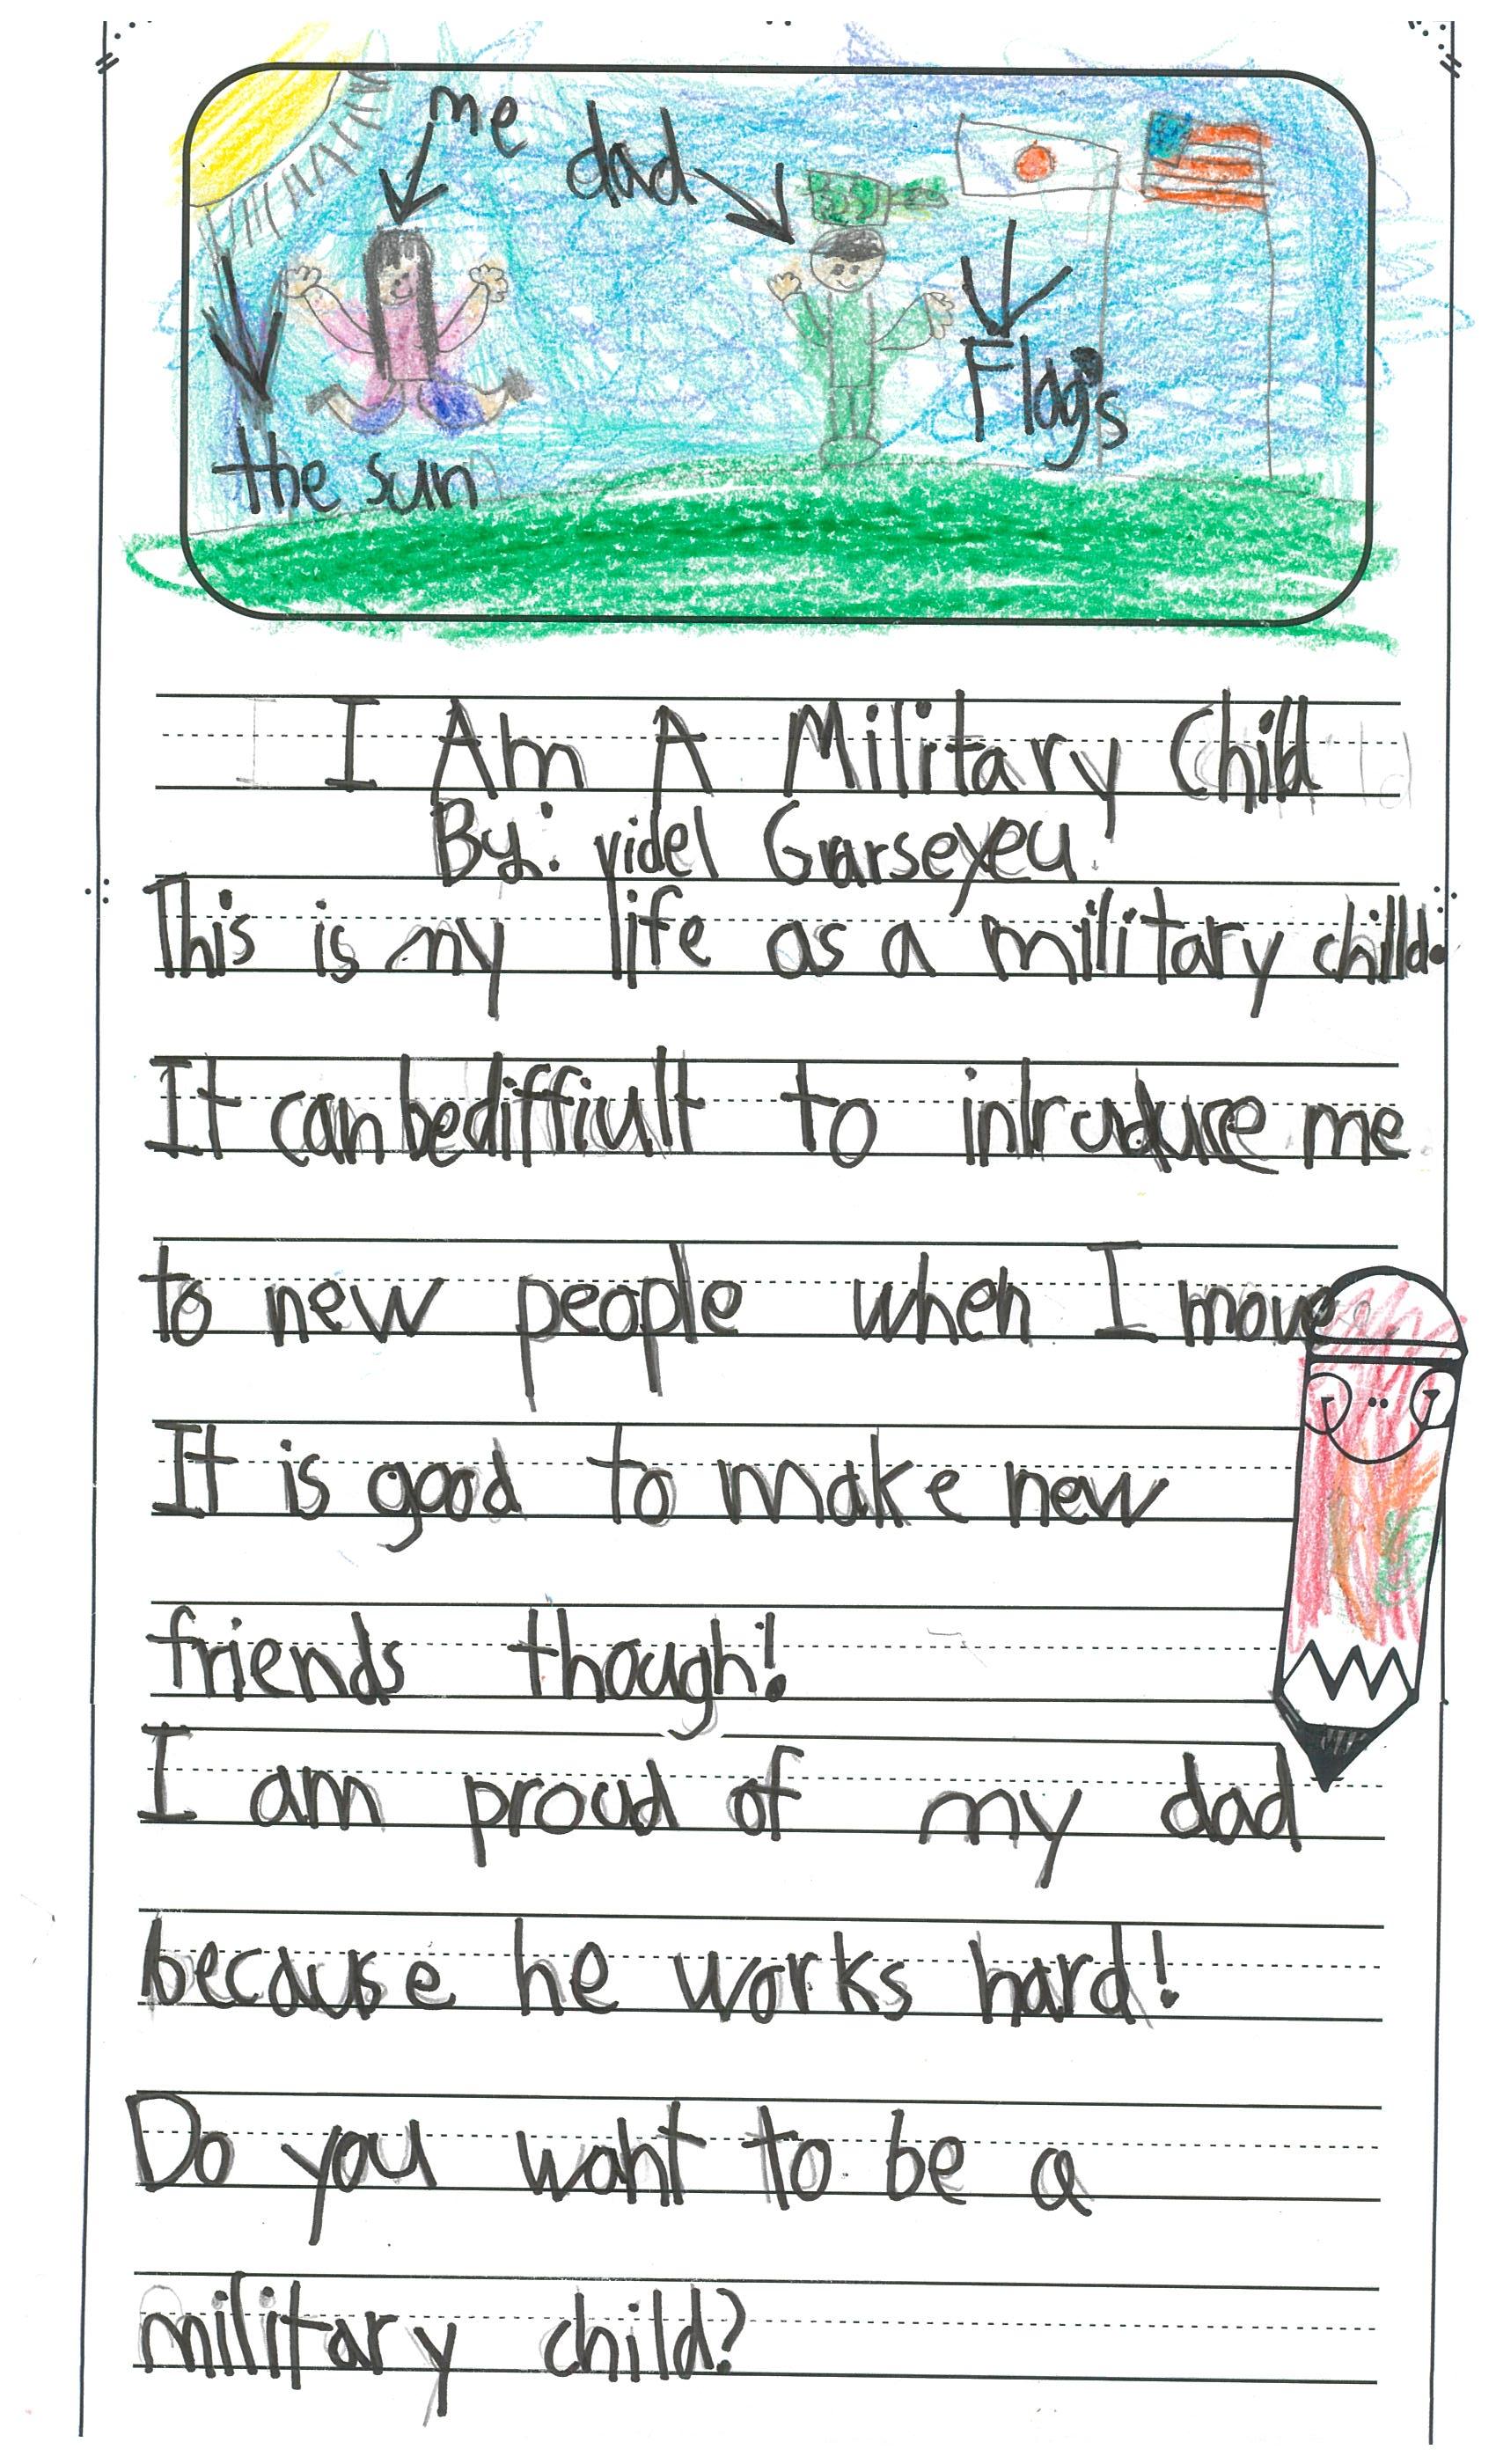 me
dad
the sun
Flags
I Am A Military Child
By: videl Garseyeu
This is my life as a military chilld.
It can be difficult to introduce me
to new people when I move
It is good to make new
friends though!
I am proud of my dad
because he works hard!
Do you want to be a
military child?